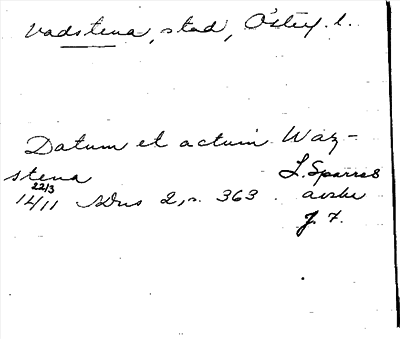 Vadstena, stad, Österg. l.
Datum et actum Waz-
stena
22/3
1411 SDns 2, s. 363. L. Sparres
avskr
f. 7.